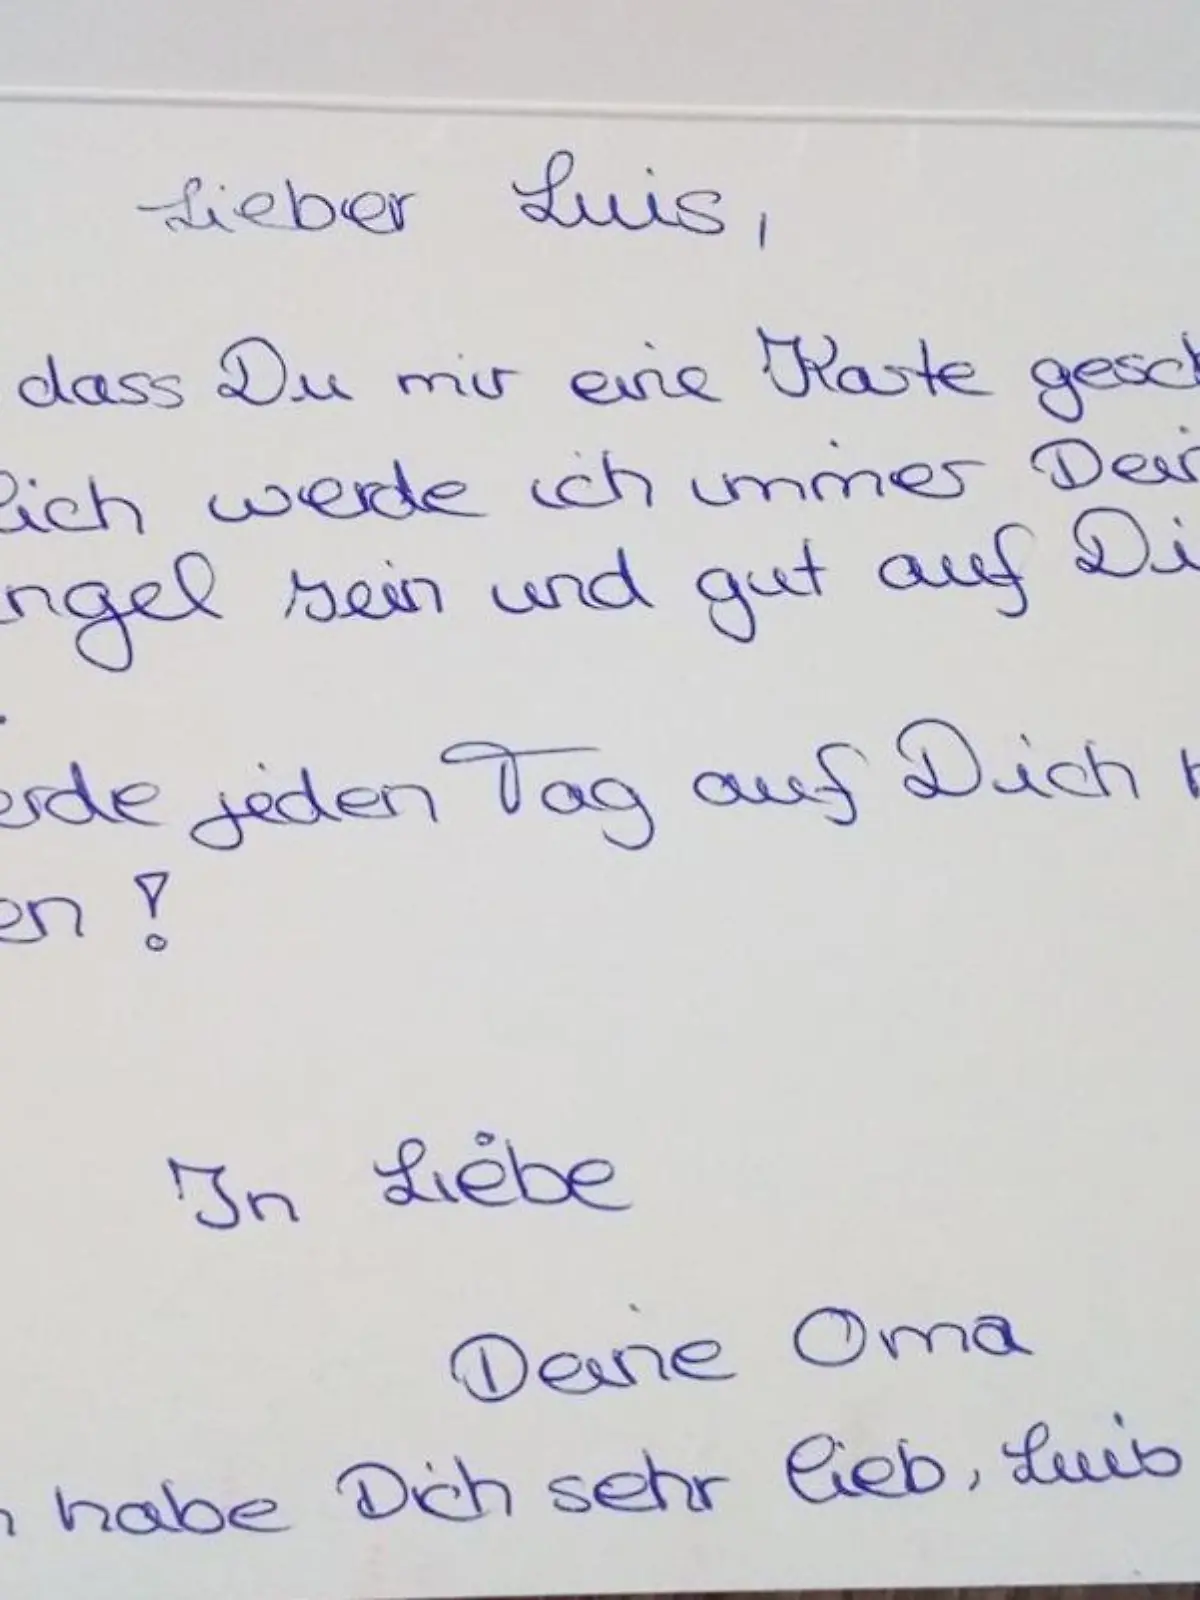 Lieber Luis,
dass Du mir eine Karte gesch
lich werde ich immer Dein
ngel sein und gut auf Di
erde jeden Tag auf Dich
en!
In Liebe
Deine Oma
h habe Dich sehr lieb, Luis